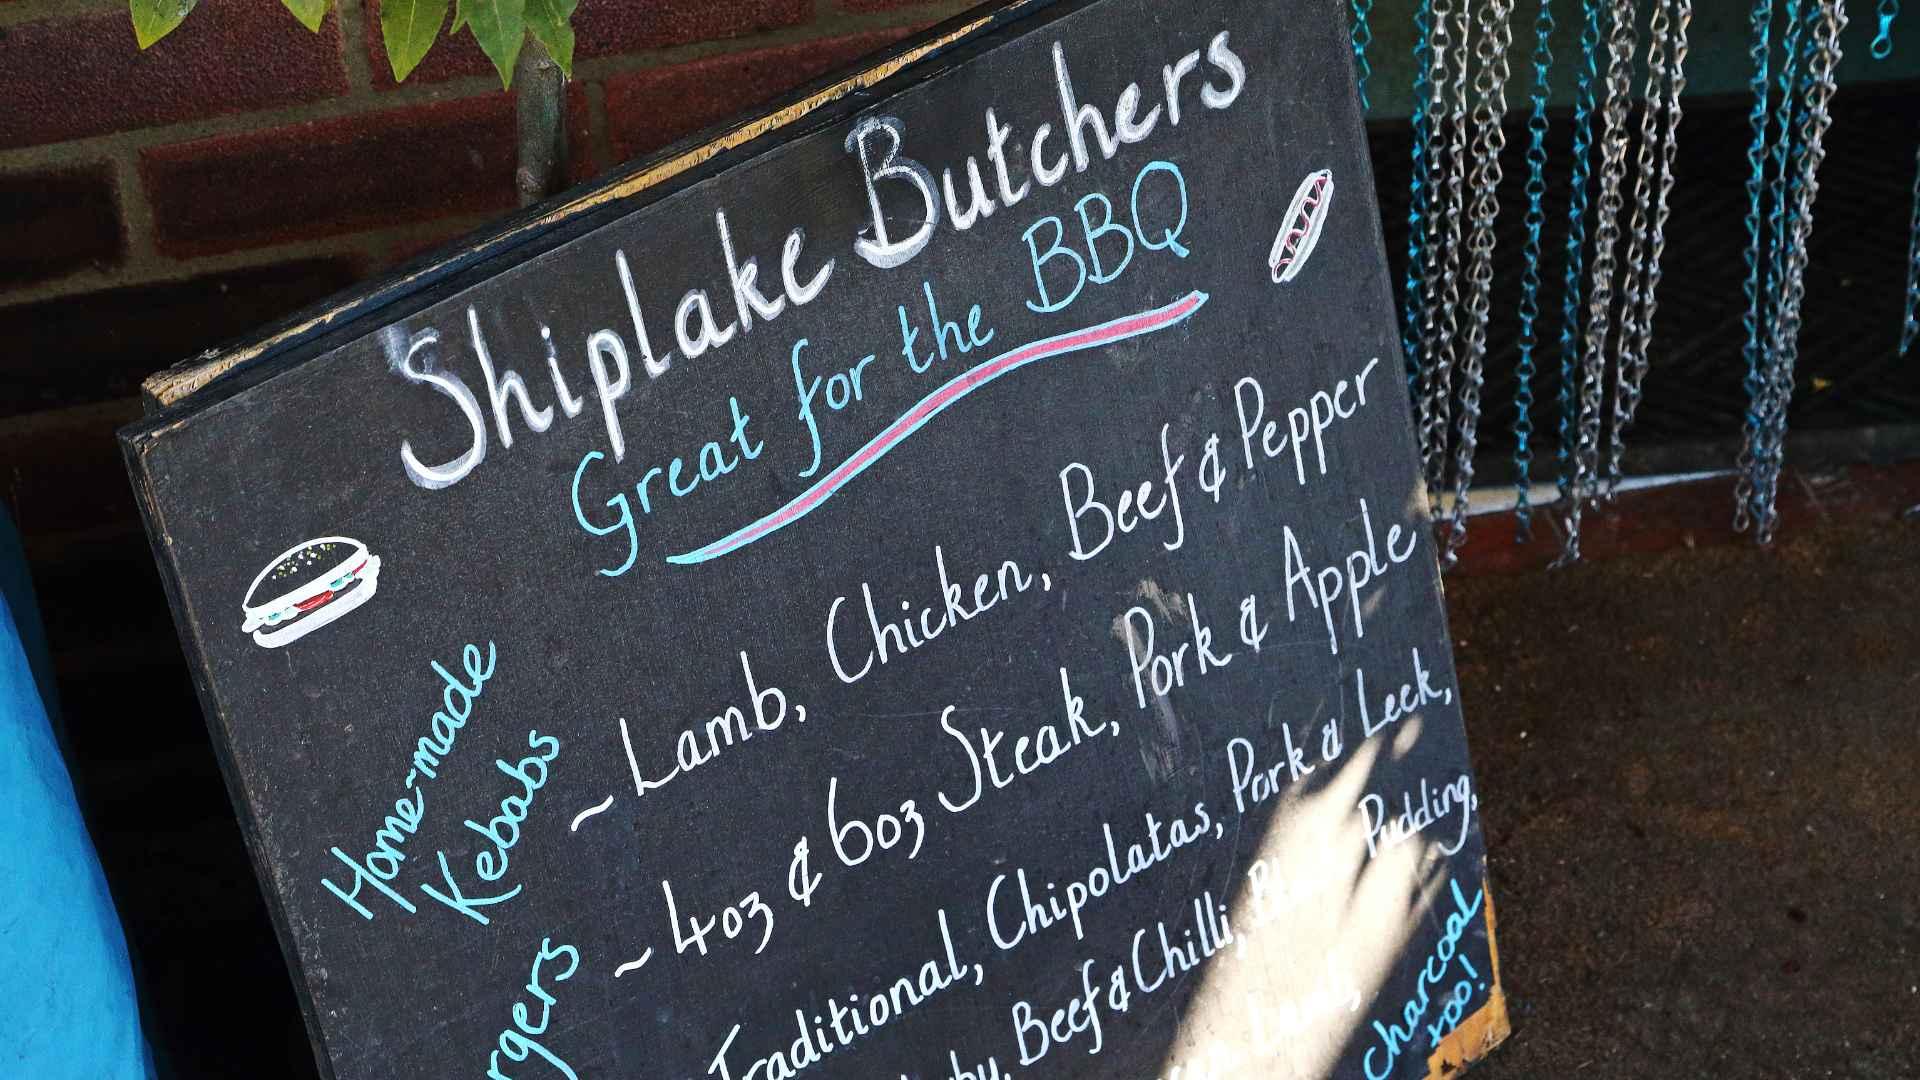 Shiplake Butchers
Great for the BBQ
Home-made
Kebabs
~ Lamb, Chicken, Beef & Pepper
~ 4oz & 6oz Steak, Pork & Apple
Traditional, Chipolatas, Pork & Leek,
Beef & Chilli, Pudding,
charcoal
too!